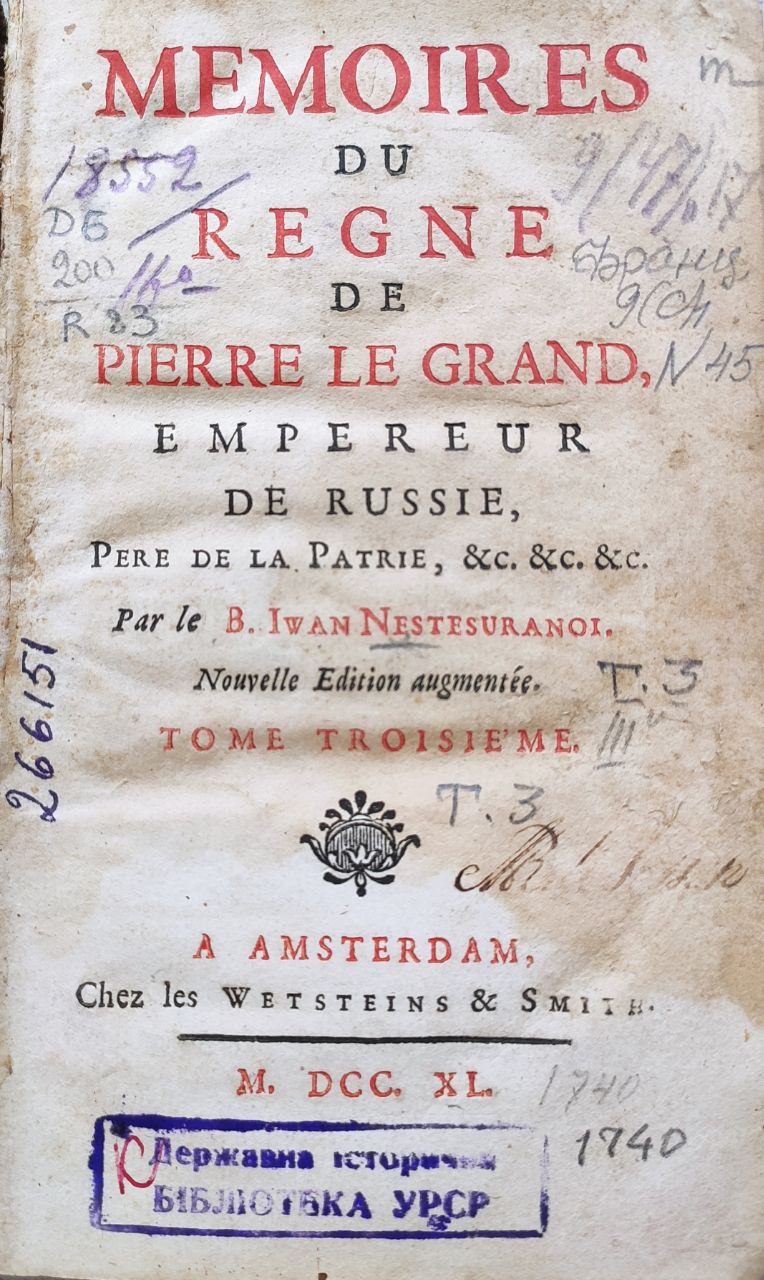 MEMOIRES
m
DU
18552
9/47/
REGNE
DБ
200
R 83
DE
PIERRE LE GRAND,
N 45
EMPEREUR
DE RUSSIE,
PERE DE LA PATRIE, &c. &c. &c.
Par le B. IWAN NESTESURANOI.
Nouvelle Edition augmentée.
Т. 3
TOME TROISIE'ME.
III
Т. 3
266151
A AMSTERDAM,
Chez les WETSTEINS & SMITH.
M. DCC. XL.
1740
1740
Державна історична
БІБЛІОТЕКА УРСР